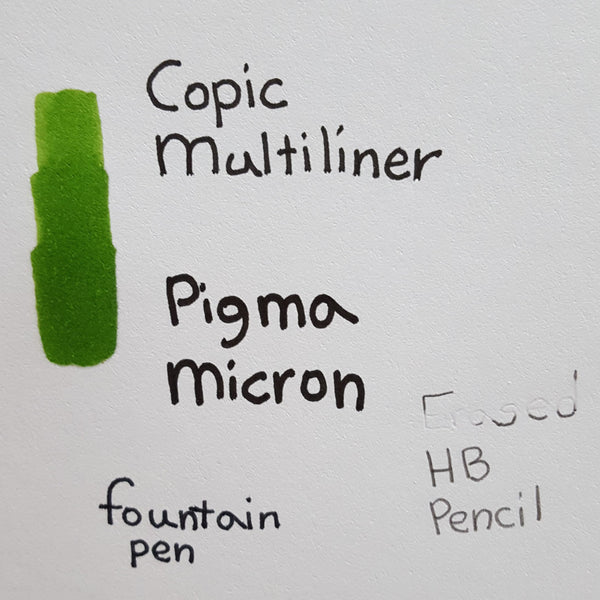 Copic
Multiliner
Pigma
Micron
Erased
HB
Pencil
fountain
pen